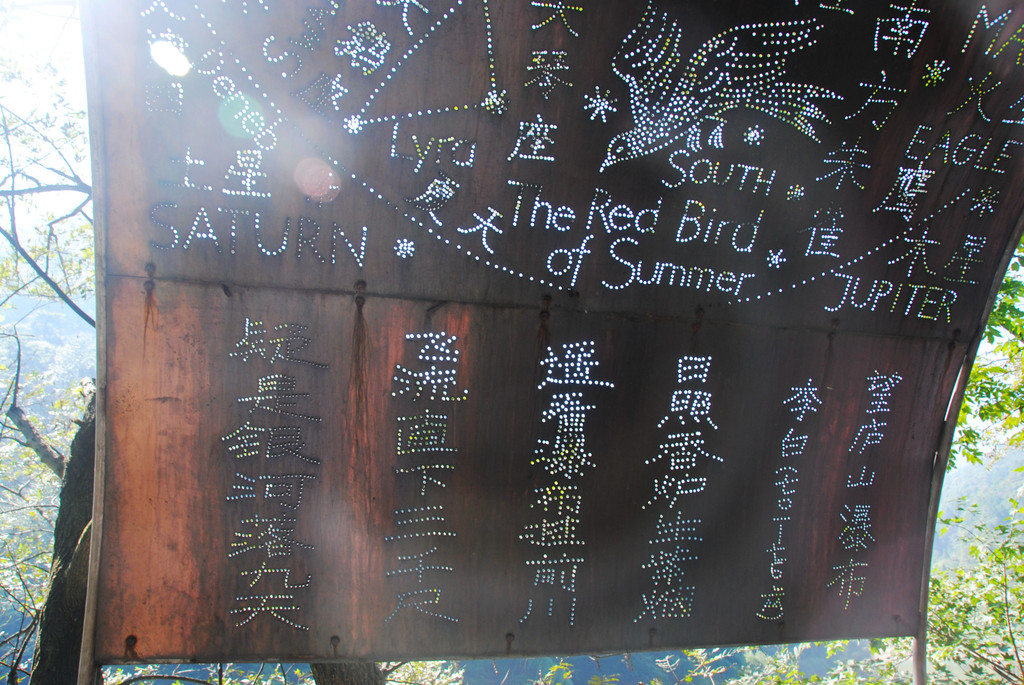 天琴座
Lyra
土星
SATURN
SOUTH
The Red Bird
of Summer
夏天
南方朱雀
EAGLE
鹰
木星
JUPITER
望庐山瀑布
李白
日照香炉生紫烟
遥看瀑布挂前川
飞流直下三千尺
疑是银河落九天